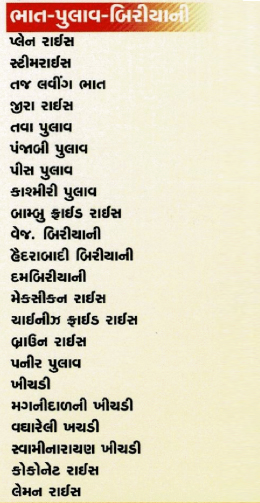 ભાત-પુલાવ-બિરીયાની
પ્લેન રાઈસ
સ્ટીમરાઈસ
તજ લવીંગ ભાત
જીરા રાઈસ
તવા પુલાવ
પંજાબી પુલાવ
પીસ પુલાવ
કાશ્મીરી પુલાવ
બામ્બુ ફ્રાઈડ રાઈસ
વેજ. બિરીયાની
હૈદરાબાદી બિરીયાની
દમબિરીયાની
મેક્સીકન રાઈસ
ચાઈનીઝ ફ્રાઈડ રાઈસ
બ્રાઉન રાઈસ
પનીર પુલાવ
ખીચડી
મગનીદાળની ખીચડી
વઘારેલી ખચડી
સ્વામીનારાયણ ખીચડી
કોકોનેટ રાઈસ
લેમન રાઈસ